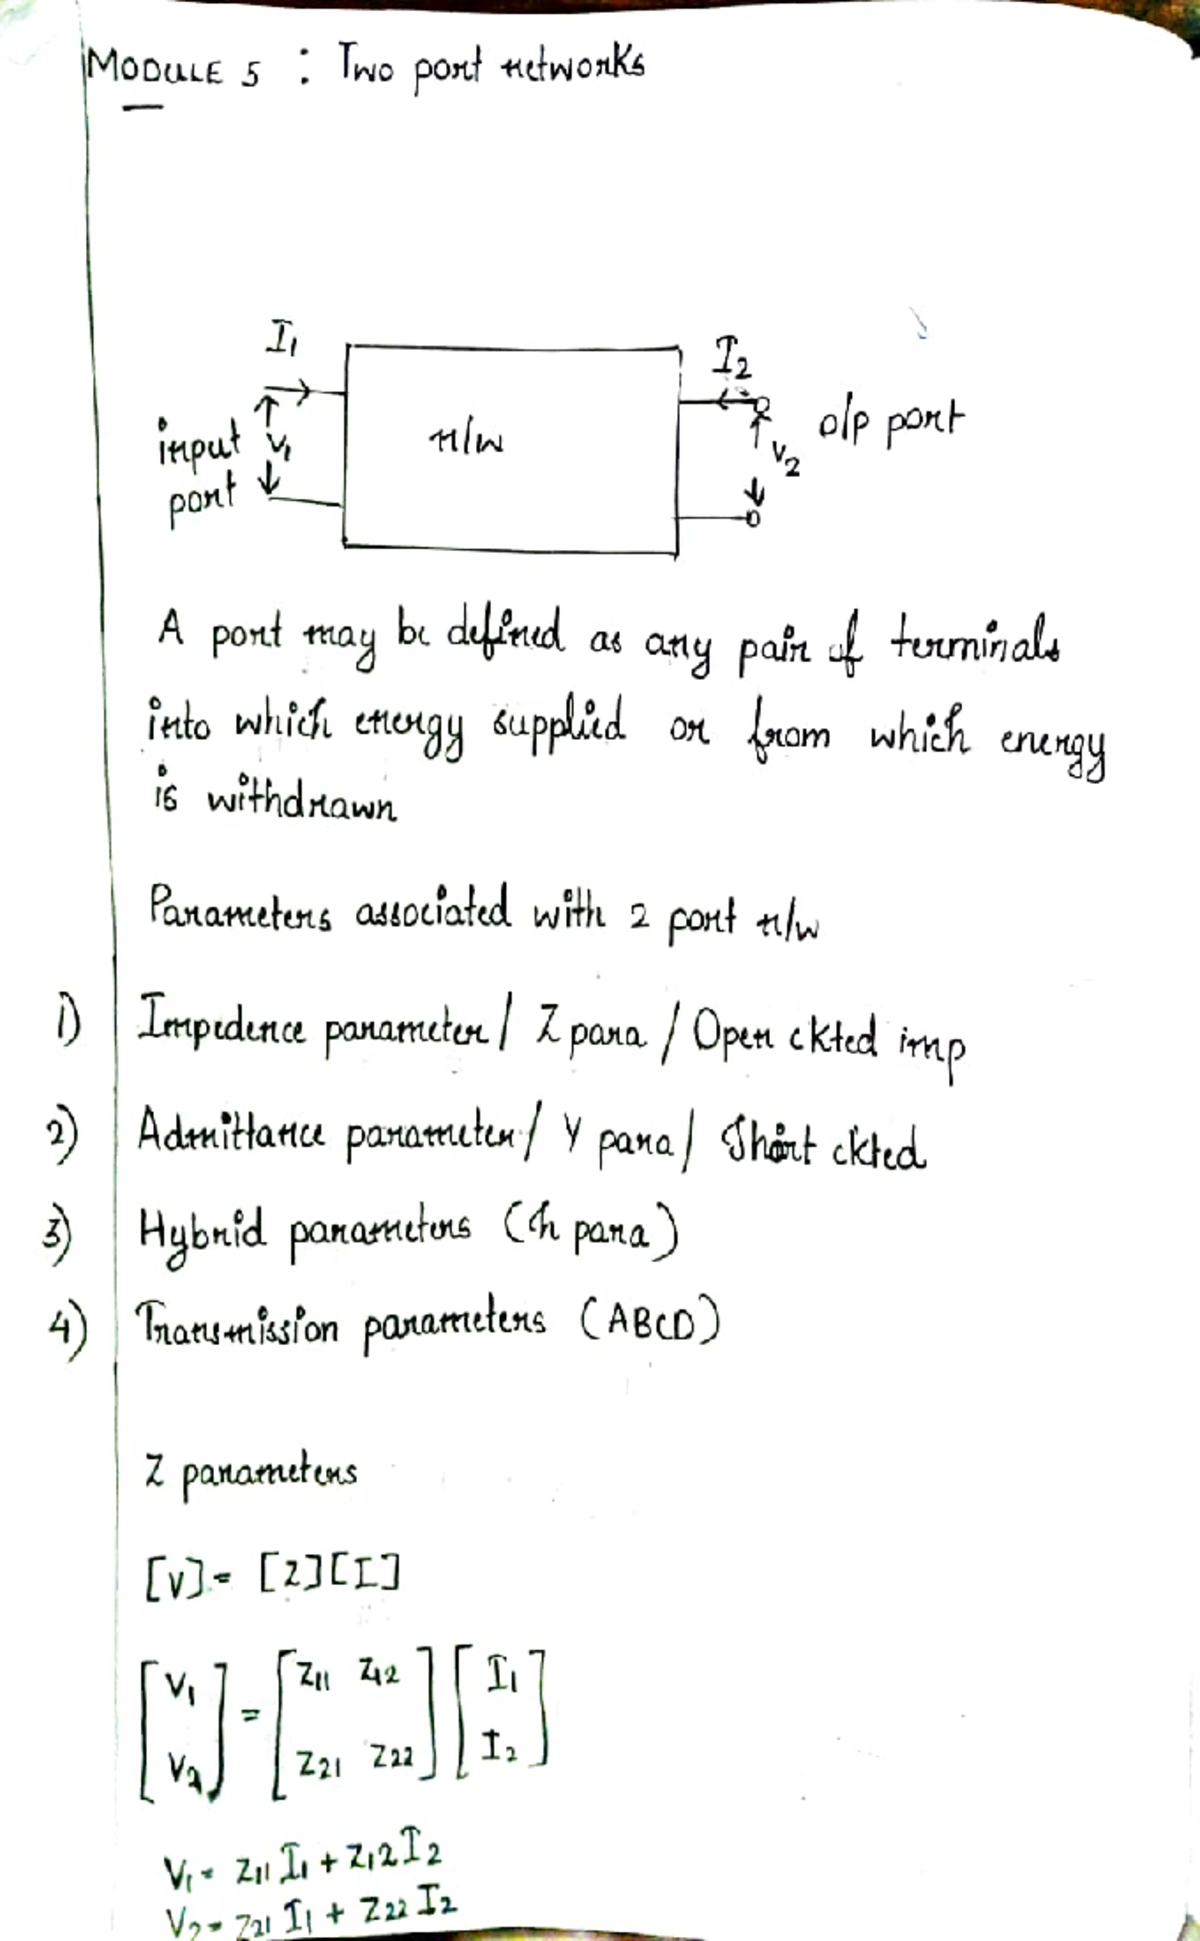 MODULE 5 : Two port networks
I1
I2
input
port
V1
n/w
V2
o/p port
A port may be defined as any pair of terminals
into which energy supplied or from which energy
is withdrawn
Parameters associated with 2 port n/w
1) Impedence parameter / Z para / Open ckted imp
2) Admittance parameter / Y para / Short ckted
3) Hybrid parameters (h para)
4) Transmission parameters (ABCD)
Z parameters
[V] = [Z][I]
[V1 V2] = [Z11 Z12 Z21 Z22] [I1 I2]
V1 = Z11 I1 + Z12 I2
V2 = Z21 I1 + Z22 I2